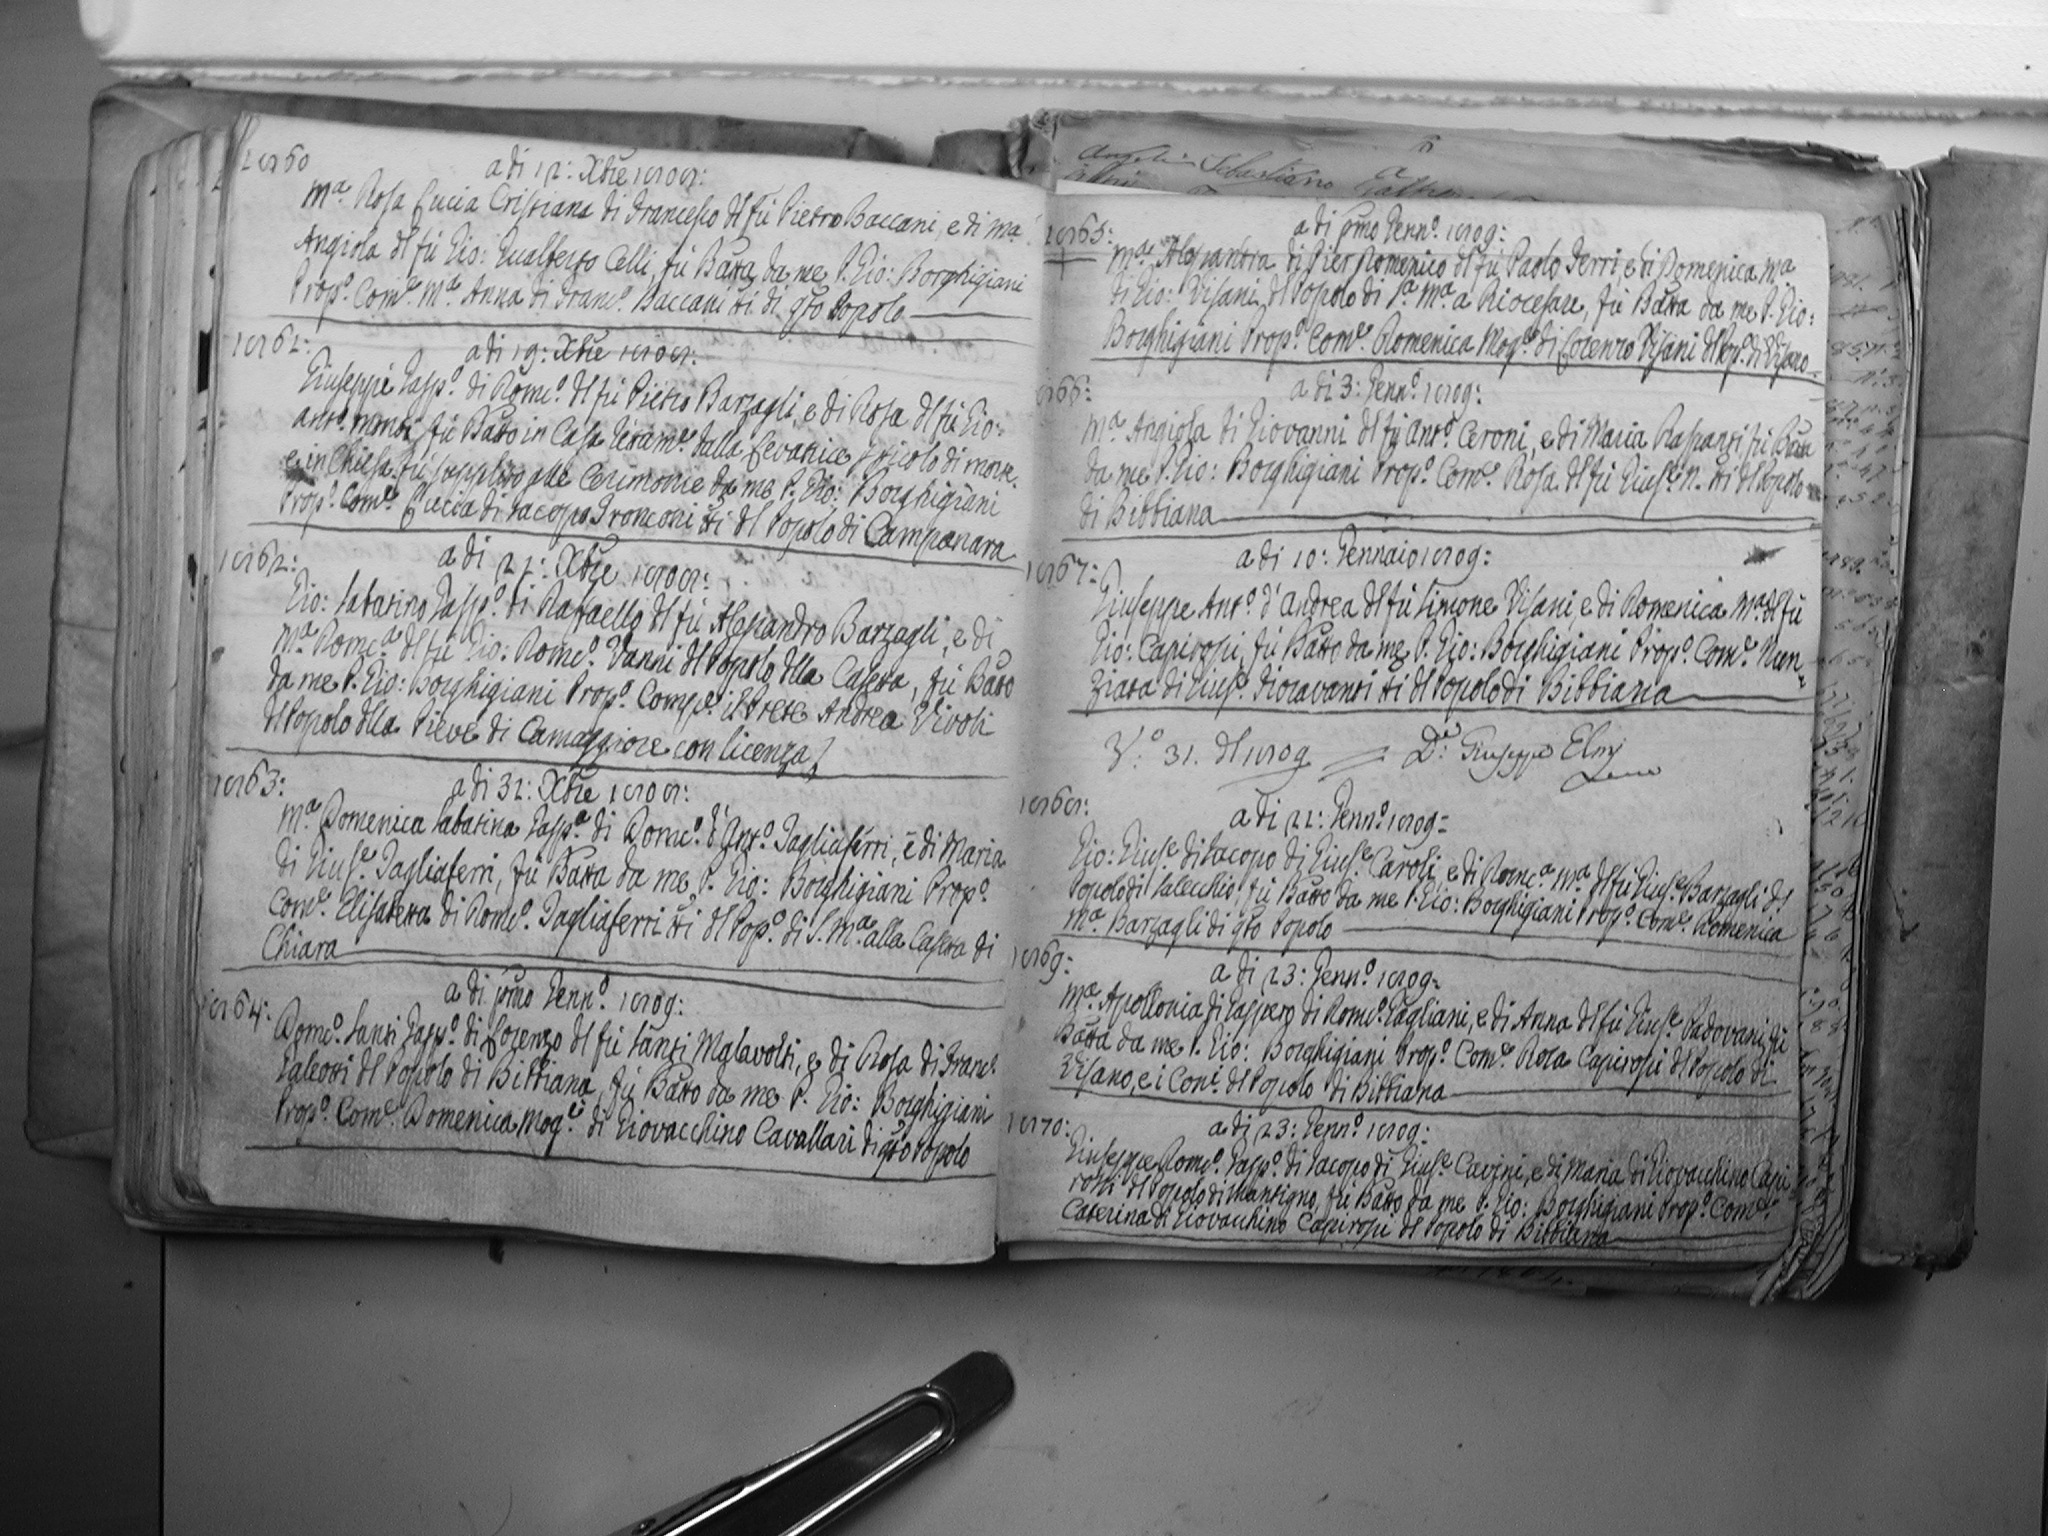 a di 12: Xbre 1808:
Mª Rosa Lucia Cristiana di Francesco dl fù Pietro Baccani, e di Mª
Angiola dl fù Gio: Gualberto Celli, fù Batta da me P. Gio: Borghigiani
Propº. Comᵉ. Mª Anna di Francº. Baccani tti di qto Popolo
a di 19: Xbre 1808:
Giuseppe Gaspº. di Domcº. dl fù Pietro Barzagli, e di Rosa dl fù Gio:
Antº. fù Batto in Casa dalla Levatrice
e in Chiesa fù supplito alle Cerimonie da me P. Gio: Borghigiani
Propº. Comᵉ. Lucia di Iacopo Fronconi tti dl Popolo di Campanara
1862:
a di 21: Xbre 1808:
Gio: Sabatino Gaspº. di Raffaello dl fù Alessandro Barzagli, e di
Mª Domcª dl fù Gio: Domcº. Vanni dl Popolo dlla Casetta, fù Batto
da me P. Gio: Borghigiani Propº. Compᵉ. il Prete Andrea Vivoli
dl Popolo dlla Pieve di Camaggiore con licenza
1863:
a di 31: Xbre 1808:
Mª Domenica Sabatina Gaspª di Domcº. d'Antº. Tagliaferri, e di Maria
di Giusᵉ. Tagliaferri, fù Batta da me P. Gio: Borghigiani Propº.
Comᵉ. Elisabetta di Domcº. Tagliaferri tti dl Popº. di S. Mª alla Casetta di
Chiara
1864:
a di pmo Gennº. 1809:
Domcº. Santi Gaspº. di Lorenzo dl fù Santi Malavolti, e di Rosa di Francº.
Galeotti dl Popolo di Bibbiana, fù Batto da me P. Gio: Borghigiani
Propº. Comᵉ. Domenica Mogᵉ. di Giovacchino Cavallari di qto Popolo
1865:
a di pmo Gennº. 1809:
Mª Alessandra di Pier Domenico dl fù Paolo Ferri, e di Domenica Mª
di Gio: Visani dl Popolo di Sª Mª a Riocesare, fù Batta da me P. Gio:
Borghigiani Propº. Comᵉ. Domenica Mogᵉ. di Lorenzo Visani dl Popº. di Visano
1866:
a di 3: Gennº. 1809:
Mª Angiola di Giovanni dl fù Antº. Ceroni, e di Maria Raspanti fù Batta
da me P. Gio: Borghigiani Propº. Comᵉ. Rosa dl fù Giusᵉ. N. tti dl Popolo
di Bibbiana
1867:
a di 10: Gennaio 1809:
Giuseppe Antº. d'Andrea dl fù Simone Visani, e di Domenica Mª dl fù
Gio: Capirossi, fù Batto da me P. Gio: Borghigiani Propº. Comᵉ. Nun-
ziata di Giusᵉ. Fioravanti tti dl Popolo di Bibbiana
Vº. 31. dl 1809 = Dr. Giuseppe Elmj
1868:
a di 22: Gennº. 1809=
Gio: Giusᵉ di Iacopo di Giusᵉ Caroli, e di Domcª Mª. dl fù Giusᵉ. Barzagli dl
Popolo di Salecchio, fù Batto da me P. Gio: Borghigiani Propº. Comᵉ. Domenica
Mª Barzagli di qto Popolo
1869:
a di 23: Gennº. 1809=
Mª Apollonia di Gaspero di Domcº. Gagliani, e di Anna dl fù Giusᵉ Padovani, fù
Batta da me P. Gio: Borghigiani Propº. Comᵉ Rosa Capirossi dl Popolo di
Visano, e i Coni. dl Popolo di Bibbiana
1870:
a di 23: Gennº. 1809:
Giuseppe Domcº. Gaspº. di Iacopo di Giusᵉ Cavini, e di Maria di Giovacchino Capi-
rossi dl Popolo di Mantigno, fù Batto da me P. Gio: Borghigiani Propº. Comᵉ.
Caterina di Giovacchino Capirossi dl Popolo di Bibbiana